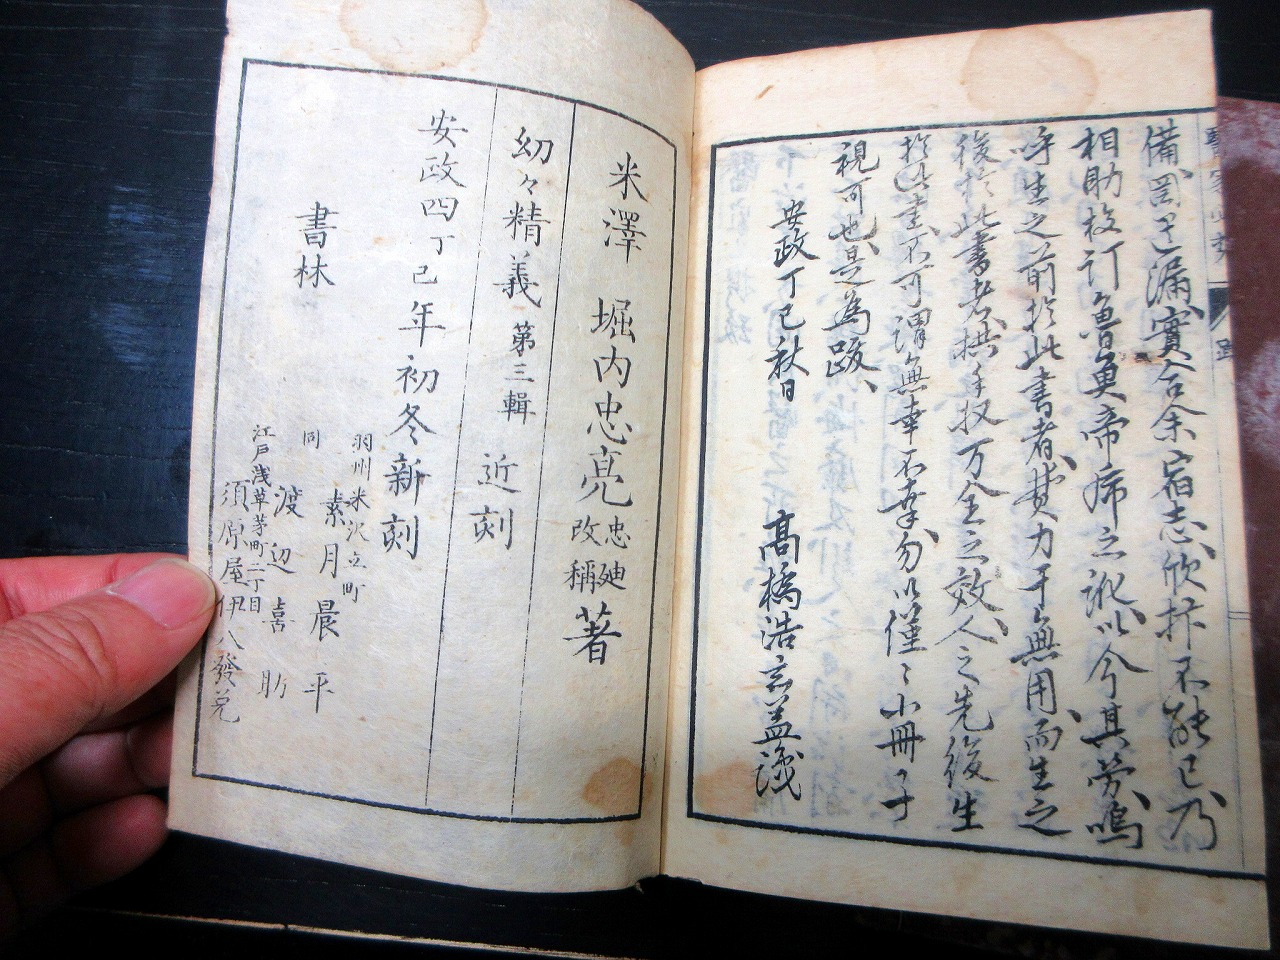 備罔遺漏、實合余宿志、欣抃不能已、乃
相助校訂魯魚帝虎之訛、以今其勞、嗚
呼生之前於此書者、費力于無用、而生之
後於此書者、拱手収万全之效、人之先後生
於此書、不可謂無幸不幸、勿以僅〻小冊子
視可也、是為跋、
安政丁巳秋日
髙橋浩玄益
米澤 堀内忠亮忠廸改稱著
幼々精義第三輯 近刻
安政四丁巳年初冬新刻
書林
羽州米沢立町
素月晨平
同
渡辺喜助
江戸浅草茅町二丁目
須原屋伊八發兌